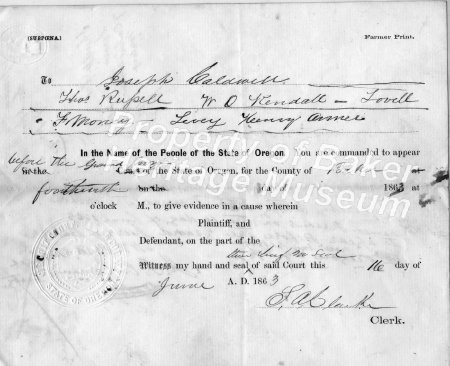 (SUBPŒNA.) Farmer Print.
To Joseph Caldwell
Thos Russell W O Kendall – Lovell
Levy Henry
In the Name of the People of the State of Oregon: You are commanded to appear
before the Grand Jury
in the Court of the State of Oregon, for the County of at
forthwith on the day of 1863 at
o'clock M., to give evidence in a cause wherein
Plaintiff, and
Defendant, on the part of the
Witness my hand and seal of said Court this 16 day of
June A. D. 1863
Clerk.
Property of Baker
Heritage Museum